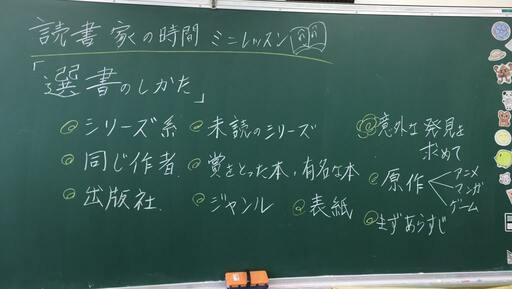 読書家の時間 ミニレッスン
「選書のしかた」
シリーズ系
同じ作者
出版社
未読のシリーズ
賞をとった本、有名な本
ジャンル
表紙
意外な発見を
求めて
原作
アニメ
マンガ
ゲーム
まずあらすじ